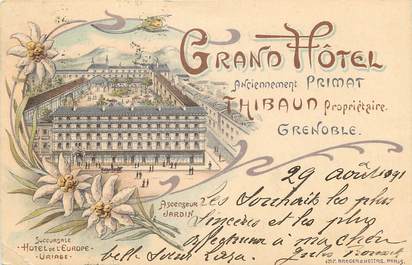 GRAND HÔTEL
Anciennement PRIMAT
THIBAUD Propriétaire.
GRENOBLE.
29 août 1901
Ascenseur
Jardin
Les Souhaits les plus
sincères et les plus
affectueux à ma chère
belle sœur
Succursale
HOTEL DE L'EUROPE
URIAGE